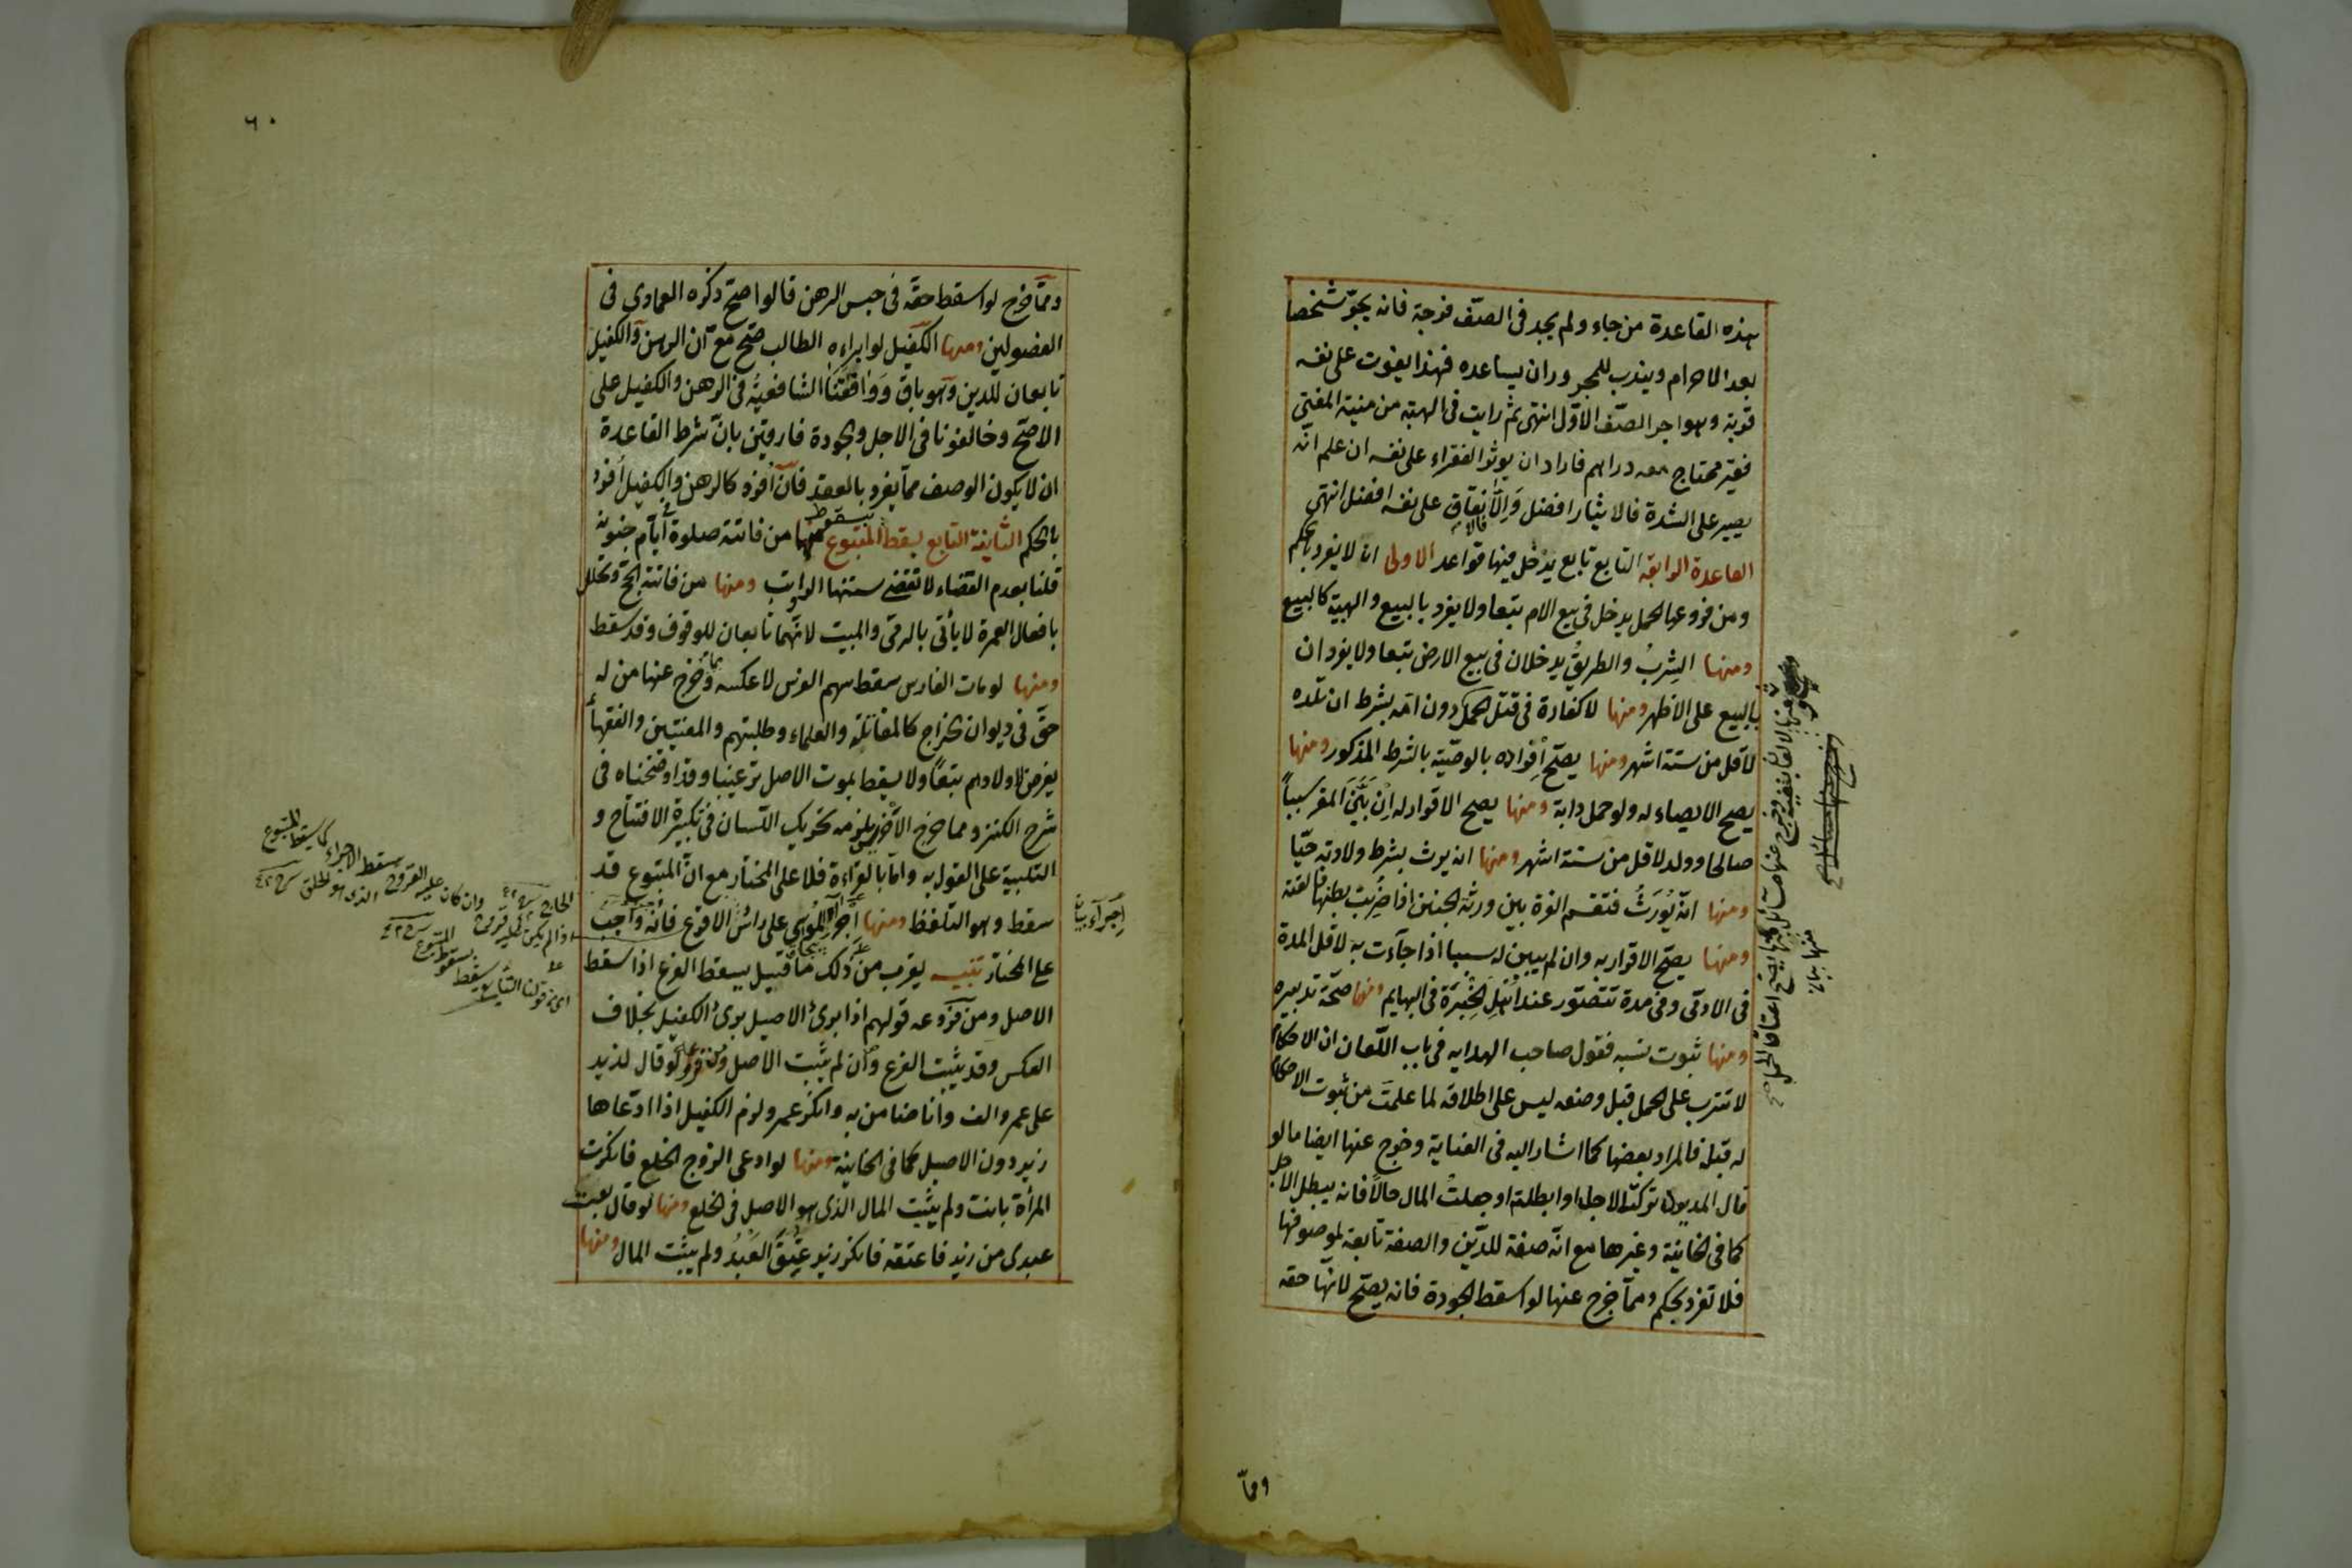 هذه القاعدة من جاء ولم يجد في الصف فرجة فانه يجر شخصا
بعد الاحرام ويندب للمجرور ان يساعده فهذا يفوت على نفسه
قربة وهو اجر الصف الاول انتهى ثم رايت في الهبة من منية المفتى
فقير محتاج معه دراهم فاراد ان يوثر الفقراء على نفسه ان علم انه
يصبر على الشدة فالايثار افضل وَاِلاّ فالانفاق على نفسه افضل انتهى
القاعدة الرابعة التابع تابع يدخل فيها قواعد الاولى انه لا يفرد بالحكم
ومن فروعها الحمل يدخل في بيع الام تبعا ولا يفرد بالبيع والهبة كالبيع
ومنها الشِربُ والطريقُ يدخلان في بيع الارض تبعا ولا يفردان
بالبيع على الاظهر ومنها لا كفارة في قتل الحمل دون امه بشرط ان تلده
لاقل من ستة اشهر ومنها يصحّ اِفراده بالوصيّة بالشرط المذكور ومنها
يصح الايصاء له ولو حمل دابة ومنها يصح الاقرار له اِنْ بَيَّنَ المقر سبباً
صالحا وولد لاقل من ستة اشهر ومنها انه يرث بشرط ولادته حيّا
ومنها انه يُورَثُ فتقسم الغرة بين ورثة الجنين اذا ضُرِبت بطنها فالقته
ومنها يصحّ الاقرار به وان لم يبين له سببا اذا جاءت به لاقل المدة
في الادمى وفى مدة تتصّور عند اَهْلِ الخِبْرَة في البهايم ومنها صحّة تدبيره
ومنها ثبوت نسبه فقول صاحب الهدايه في باب اللّعان ان الاحكام
لا تترتب على الحمل قبل وضعه ليس على اطلاقه لما علمتَ من ثبوت الاحكام
له قبله فالمراد بعضها كما اشار اليه في العناية وخرج عنها ايضا ما لو
قال المديون تركت الاجل او ابطلته او جعلتُ المال حالاً فانه يبطل الاجل
كما في الخانية وغيرها مع انّه صفة للدّين والصفة تابعة لموصوفها
فلا تفرد بحكم وممّا خرج عنها لو اسقط الجودة فانه يصحّ لانّها حقه
وممّا
٦٠
وممّا خرج لو اسقط حقه في حبس الرهن قالوا صحّ ذكره العمادى في
الفصولين ومنها الكفيل لو ابراءه الطالب صحّ مع انّ الرهن والكفيل
تابعان للدين وهو باق وَوَافَقَنَا الشافعيُّة في الرهن والكفيل على
الاصحّ وخالفونا في الاجل والجودة فارقين بانّ شرط القاعدة
ان لا يكون الوصف ممّا يفرد بالعقد فانّ اُفرد كالرهن والكفيل اُفرد
بالحكم الثانية التابع يسقط بسقوط المتبوع منها من فاتته صلوة في ايّام جنونه
قلنا بعدم القضاء لا تقضى سننها الرواتب ومنها من فاتته الحجّ وتحلل
بافعال العمرة لا يأتى بالرمى والمبيت لانّهما تابعان للوقوف وقد سقط
ومنها لو مات الفارس سقط سهم الفرس لا عكسه وممّا خرج عنها من له
حقّ في ديوان الخراج كالمقاتلة والعلماء وطلبتهم والمفتيين والفقهاء
يفرض لاولادهم تبعاً ولا يسقط بموت الاصل ترغيبا وقد اوضحناه في
شرح الكنز ومما خرج الاَخرس يلزمه تحريك اللّسان في تكبيرة الافتتاح و
التلبية على القول به وامّا بالقراءة فلا على المختار مع انّ المتبوع قد
سقط وهو التلفظ ومنها اِجراء الموسى على راس الاقرع فانه واجب
على المختار تنبيه يقرب من ذلك ما قيل يسقط الفرع اذا سقط
الاصل ومن فروعه قولهم اذا برئ الاصيل برئ الكفيل بخلاف
العكس وقد يثبت الفرع وان لم يثبت الاصل ومن فروعه لو قال لزيد
على عمرو الف وانا ضامن به وانكر عمرو لزم الكفيل اذا ادّعاها
زيد دون الاصيل كما في الخانية ومنها لو ادعى الزوج الخلع فانكرت
المرأة بانت ولم يثبت المال الذى هو الاصل في الخلع ومنها لو قال بعت
عبدى من زيد فاعتقه فانكر زيد عَتِقَ العَبْدُ ولم يثبت المال ومنها
اِجراء بيان